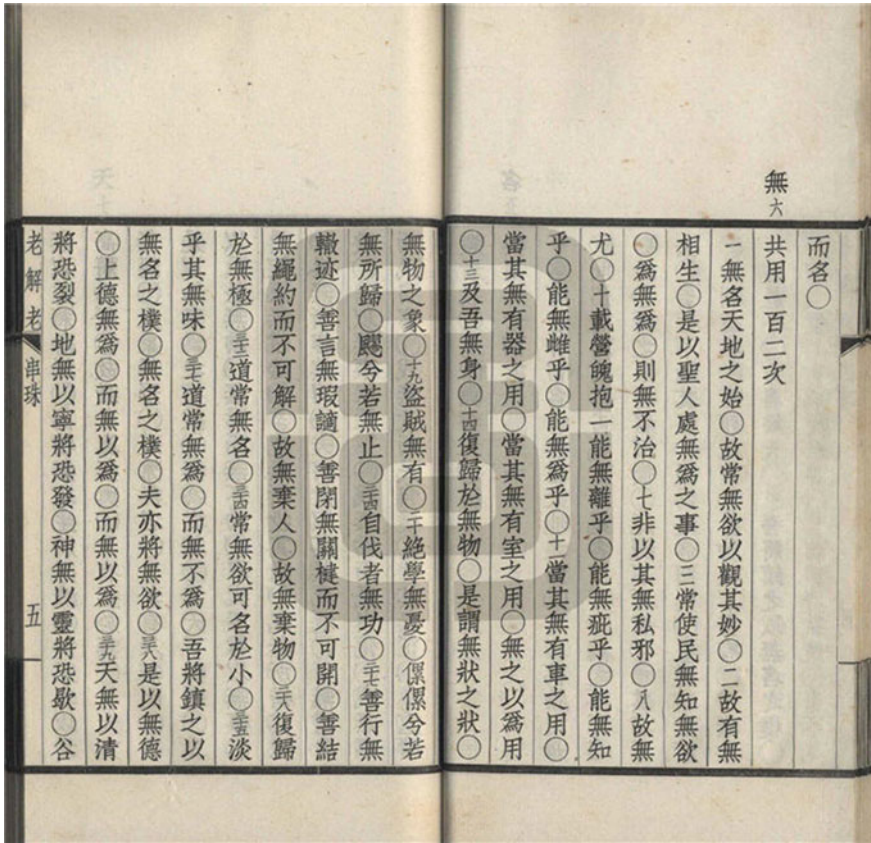 無六
而名○
共用一百二次
一無名天地之始○故常無欲以觀其妙○二故有無
相生○是以聖人處無爲之事○三常使民無知無欲
○爲無爲○則無不治○七非以其無私邪○八故無
尤○十載營魄抱一能無離乎○能無疵乎○能無知
乎○能無雌乎○能無爲乎○十一當其無有車之用○
當其無有器之用○當其無有室之用○無之以爲用
○十三及吾無身○十四復歸於無物○是謂無狀之狀○
無物之象○十九盜賊無有○二十絕學無憂○儽儽兮若
無所歸○飂兮若無止○二十四自伐者無功○二十七善行無
轍迹○善言無瑕讁○善閉無關楗而不可開○善結
無繩約而不可解○故無棄人○故無棄物○二十八復歸
於無極○三十二道常無名○三十四常無欲可名於小○三十五淡
乎其無味○三十七道常無爲○而無不爲○吾將鎮之以
無名之樸○無名之樸○夫亦將無欲○三十八是以無德
○上德無爲○而無以爲○而無以爲○三十九天無以清
將恐裂○地無以寧將恐發○神無以靈將恐歇○谷
老解老 串珠 五